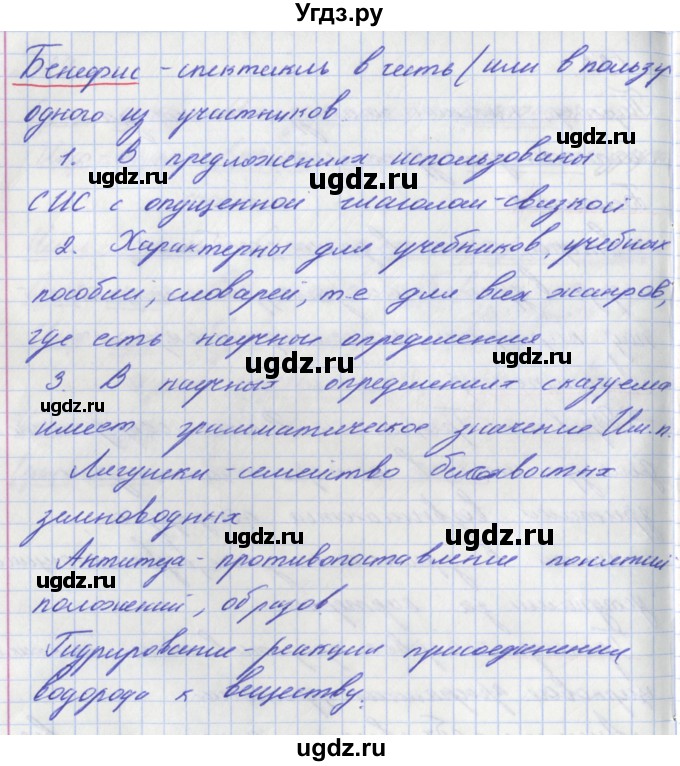 Угдз.ру
Бенефис - спектакль в честь (или в пользу
одного из участников.
1. В предложениях использованы
СИС с опущенной глаголом-связкой
2. Характерны для учебников, учебных
пособий, словарей, т.е для всех жанров,
где есть научные определения
3. В научных определениях сказуема
имеет грамматическое значение Им.п.
Лягушки - семейство бесхвостых
земноводных
Антитеза - противопоставление понятий
положений, образов.
Гидрирование - реакция присоединения
водорода к веществу.
ugdz.ru
ugdz.ru
ugdz.ru
ugdz.ru
ugdz.ru
ugdz.ru
ugdz.ru
ugdz.ru
ugdz.ru
ugdz.ru
ugdz.ru
ugdz.ru
ugdz.ru
ugdz.ru